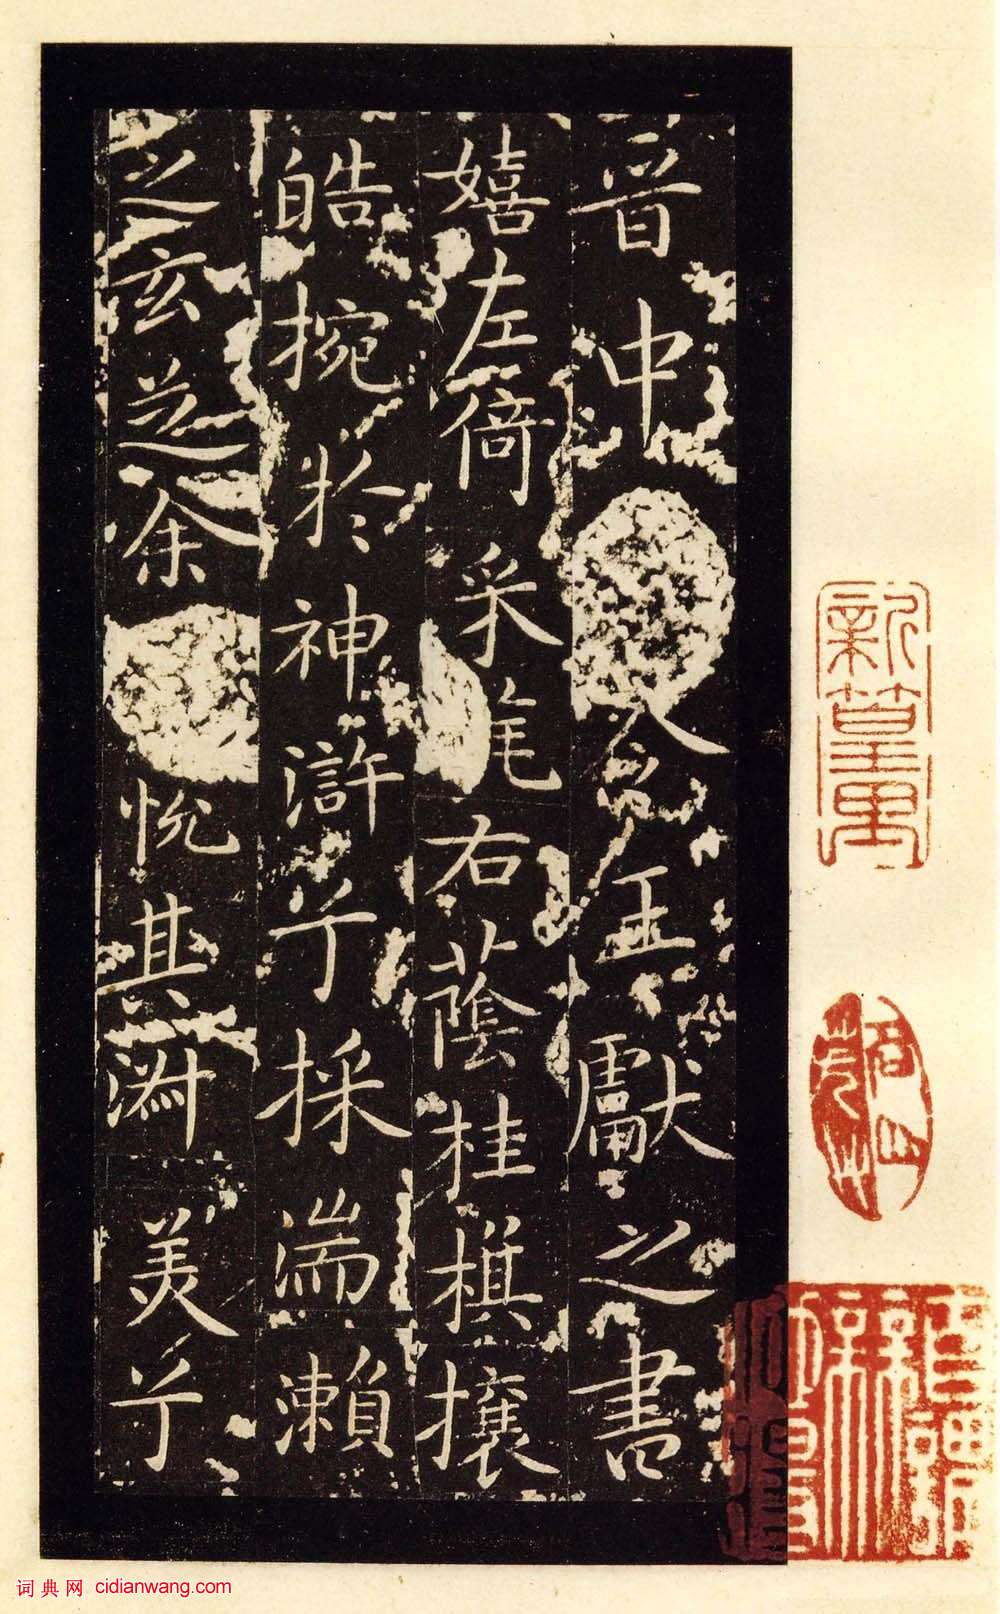 晉中令王獻之書
嬉左倚采旄右蔭桂棋攘
皓捥於神滸兮採湍瀨
之玄芝余悅其淑美兮
词典网 cidianwang.com